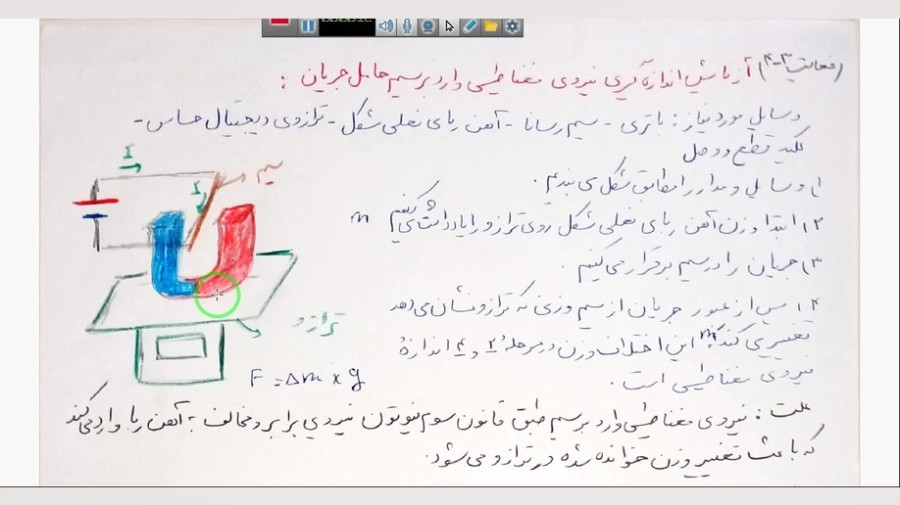 (فعالیت ۳-۴) آزمایش اندازه گیری نیروی مغناطیسی وارد بر سیم حامل جریان :
وسایل مورد نیاز : باتری - سیم رسانا - آهن ربای نعلی شکل - ترازوی دیجیتال حساس -
کلید قطع و وصل
۱) وسایل و مدار را مطابق شکل می بندیم.
۲) ابتدا وزن آهن ربای نعلی شکل روی ترازو را یادداشت می کنیم m
۳) جریان را در سیم برقرار می کنیم.
۴) پس از عبور جریان از سیم وزنی که ترازو نشان می دهد
تغییر می کند m' این اختلاف وزن در مرحله ۲ و ۴ اندازهٔ
نیروی مغناطیسی است.
I
I
سیم
ترازو
F = Δm × g
علت : نیروی مغناطیسی وارد بر سیم طبق قانون سوم نیوتون نیروی برابر و مخالف به آهن ربا وارد می کند
که باعث تغییر وزن خوانده شده در ترازو می شود.